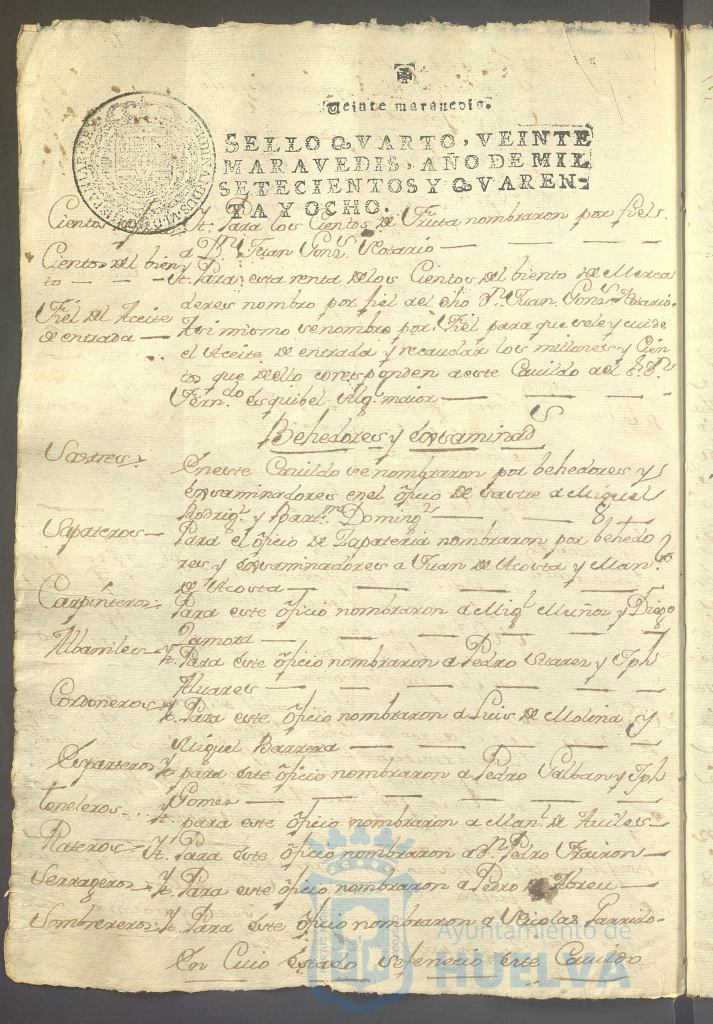 Veinte maravedis.
SELLO QVARTO, VEINTE
MARAVEDIS, AÑO DE MIL
SETECIENTOS Y QVAREN-
TA Y OCHO.
Cientos
Yt. Para los Cientos de Fruta nombraron por fiel
a Dn. Juan Gons. Rosario
Cientos del bien
to
Yt. Para esta renta de los Cientos del biento de Merca
deres nombro por fiel del dho Dn. Juan Gons. Rosario.
Fiel del Aceite
de entrada
Asi mismo se nombro por Fiel para que sele y cuide
el Aceite de entrada y recaudar los millones y Cien
tos que dello corresponden a este Cavildo a el Sr. Dn.
Ferndo. esquibel Alg. maior
Behedores y exsaminads
Sastres
En este Cavildo se nombraron por behedores y
exsaminadores en el ofício de sastre a Miguel
Rodrigz. y Bartme. Domingz.
Sapateros
Para el ofício de Zapateria nombraron por behedo
res y exsaminadores a Juan de Acosta y Manl.
de Acosta
Carpinteros
Para este ofício nombraron a Migl. Muñoz y Diego
Zamora
Albamiles
Yt. Para este ofício nombraron a Pedro Suares y Jph
Alvares
Cordoneros
Yt. Para este ofício nombraron a Luis de Molina y
Miguel Barrera
Esparteros
Yt. para este ofício nombraron a Pedro Galban y Jph
Gomes
toneleros
Yt. para este ofício nombraron a Manl. de Aviles
Plateros
Yt. Para este ofício nombraron a Dn. Pedro
Serrageros
Yt. Para este ofício nombraron a Pedro de Abreu
Sombrereros
Yt. Para este ofício nombraron a Nicolas Garrido
En Cuio estado se fenecio este Cavildo
Ayuntamiento de
HUELVA